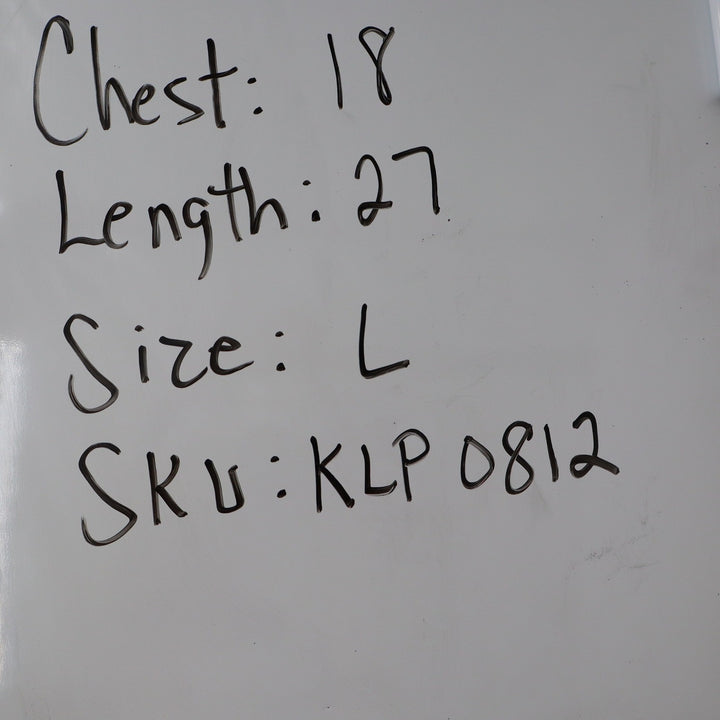 Chest: 18
Length: 27
Size: L
SKU: KLP 0812